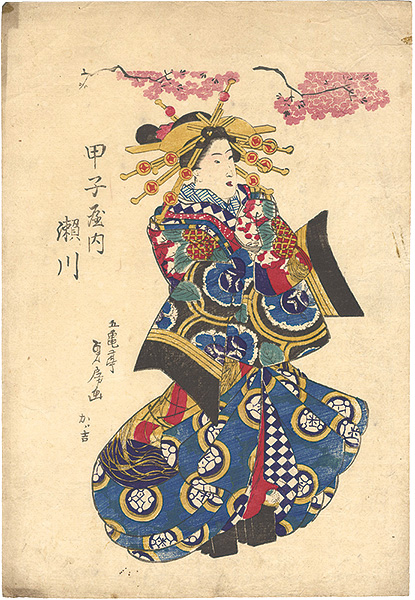 甲子屋内
瀬川
五亀亭
貞房画